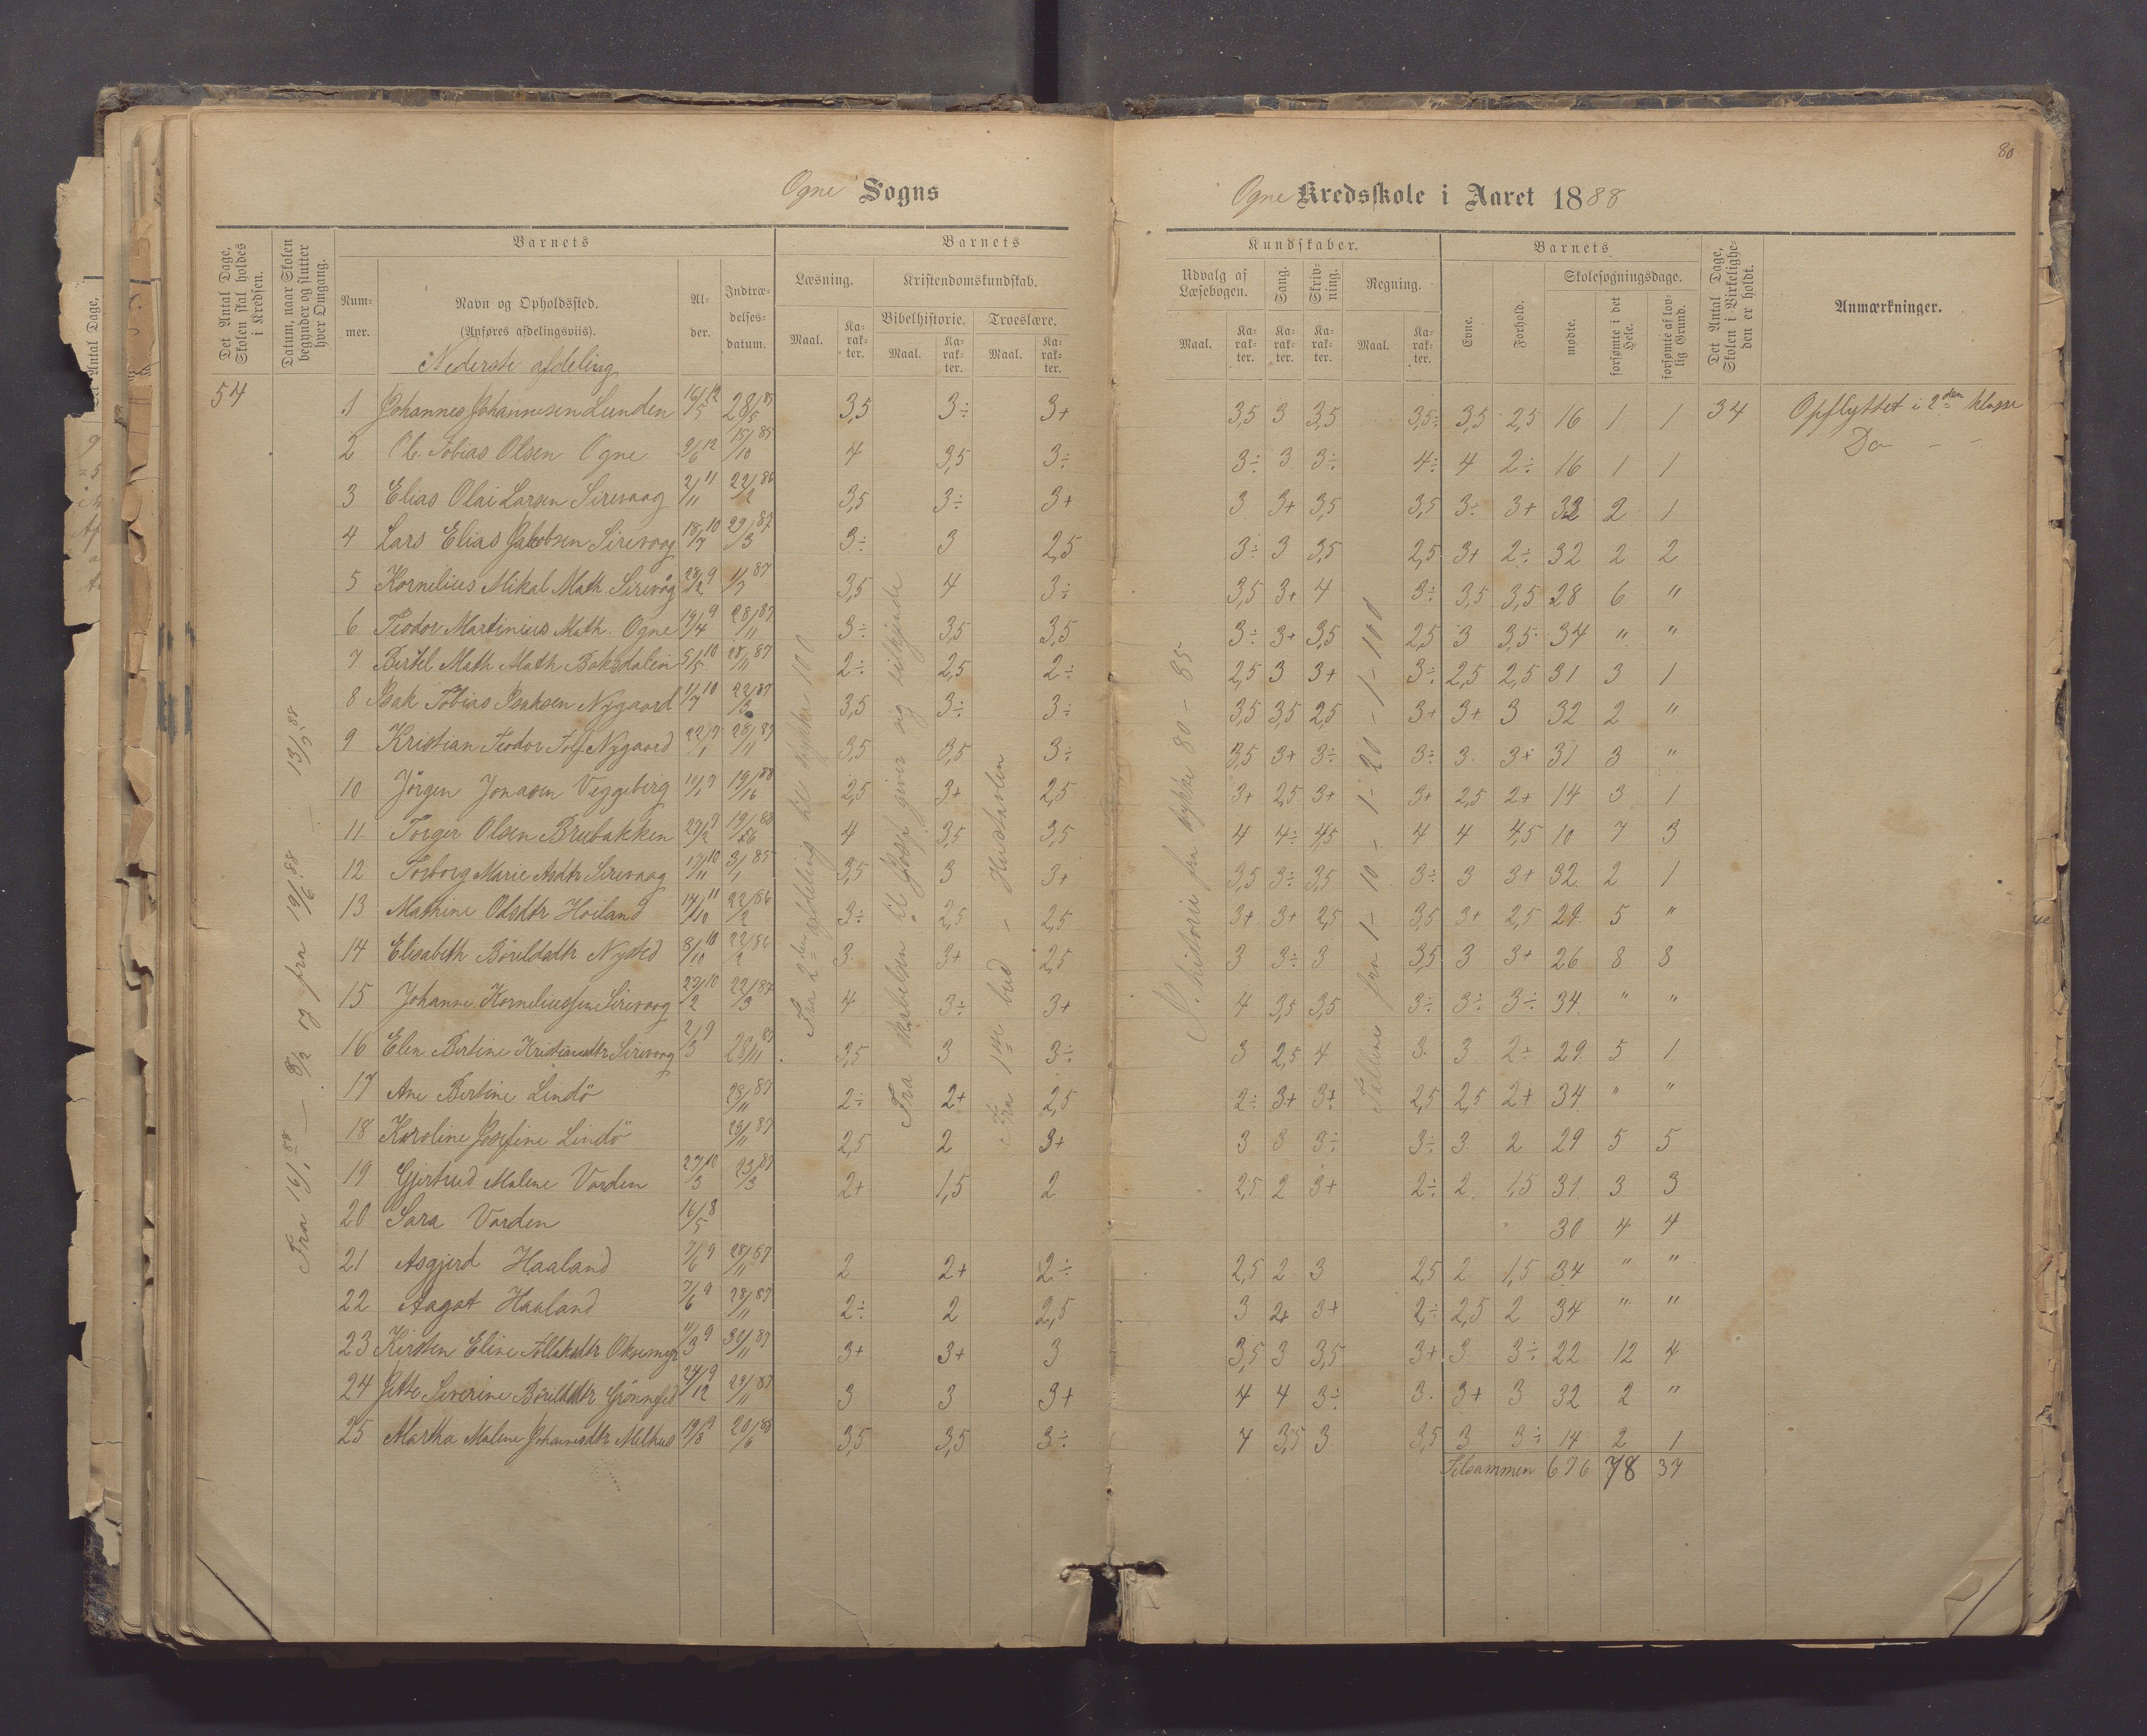 80
Ogne Sogns
Ogne Kredsskole i Aaret 1888
Det Antal Dage, Skolen skal holdes i Kredsen.
Datum, naar Skolen begynder og slutter hver Omgang.
Barnets
Nummer.
Navn og Opholdssted.
(Anføres afdelingsviis).
Alder.
Indtrædelsesdatum.
Barnets
Læsning.
Kristendomskundskab.
Bibelhistorie.
Troeslære.
Maal.
Karakter.
Maal.
Karakter.
Maal.
Karakter.
Kundskaber.
Udvalg af Læsebogen.
Sang.
Skrivning.
Regning.
Maal.
Karakter.
Karakter.
Karakter.
Maal.
Karakter.
Barnets
Evne.
Forhold.
Skolesøgningsdage.
mødte.
forsømte i det Hele.
forsømte af lovlig Grund.
Det Antal Dage, Skolen i Virkeligheden er holdt.
Anmærkninger.
Nederste afdeling
54
Fra 16/1 88 — 8/2 og fra 19/6 88 — 13/7 88
Fra 2den afdeling til stykke 100
Fra skabelsen til Josef giver sig tilkjende
Fra 1ste bud – Hustavlen
P. historie fra stykke 80 – 85
Tallene fra 1 – 10 – 1 – 20 – 1 – 100
1 Johannes Johannesen Lunden 16/5 12 28/5 85 3,5 3÷ 3+ 3,5 3 3,5 3,5÷ 3,5 2,5 16 1 1 34 Opflyttet i 2den klasse
2 Ole Tobias Olsen Ogne 9/6 12 15/10 85 4 3,5 3÷ 3÷ 3 3÷ 4÷ 4 2÷ 16 1 1 Do – –
3 Elias Olai Larsen Sirevaag 2/11 11 22/2 86 3,5 3÷ 3+ 3 3+ 3,5 3,5 3÷ 3+ 32 2 1
4 Lars Elias Jakobsen Sirevaag 18/7 10 29/3 87 3÷ 3 2,5 3÷ 3 3,5 2,5 3+ 2÷ 32 2 2
5 Kornelius Mikal Math. Sirevåg 28/12 9 1/7 87 3,5 4 3÷ 3,5 3+ 4 3÷ 3,5 3,5 28 6 "
6 Teodor Martinius Math. Ogne 19/4 9 28/11 87 3÷ 3,5 3,5 3÷ 3+ 3,5 2,5 3 3,5 34 " "
7 Bertel Math Math Baksdalen 5/5 10 28/11 87 2÷ 2,5 2÷ 2,5 3 3+ 3÷ 2,5 2,5 31 3 1
8 Isak Tobias Isaksen Nygaard 11/7 10 22/3 87 3,5 3÷ 3÷ 3,5 3,5 2,5 3+ 3+ 3 32 2 "
9 Kristian Teodor Tolf Nygaard 22/1 9 28/11 87 3,5 3,5 3÷ 3,5 3+ 3÷ 3÷ 3 3+ 31 3 "
10 Jörgen Jonasen Veggeberg 10/1 9 19/16 88 2,5 3+ 2,5 3+ 2,5 3+ 3+ 2,5 2+ 14 3 1
11 Torger Olsen Brubakken 27/2 9 19/6 88 4 3,5 3,5 4 4÷ 4,5 4 4 4,5 10 7 3
12 Torborg Marie Asdtr Sirevaag 17/11 10 3/1 85 3,5 3 3+ 3,5 3÷ 3,5 3÷ 3 3+ 32 2 1
13 Mathine Olsdtr Hoiland 14/10 11 22/2 86 3÷ 2,5 2,5 3+ 3+ 2,5 3,5 3+ 2,5 29 5 "
14 Elisabeth Börildsdtr Nysted 8/10 10 22/2 86 3 3+ 2,5 3 3÷ 3 3,5 3 3+ 26 8 8
15 Johanne Korneliussen Sirevaag 27/2 10 22/3 87 4 3÷ 3+ 4 3,5 3,5 3÷ 3÷ 3÷ 34 " "
16 Elen Bertine Kristiansdtr Sirevaag 2/3 9 28/11 87 3,5 3 3÷ 3 2,5 4 3 3 2÷ 29 5 1
17 Ane Bertine Lindö 28/11 87 2÷ 2+ 2,5 2÷ 3+ 3+ 2,5 2,5 2+ 34 " "
18 Karoline Josefine Lindö 28/11 87 2,5 2 3+ 3 3 3÷ 3÷ 3 2 29 5 5
19 Gjertrud Malene Varden 27/3 10 23/3 87 2+ 1,5 2 2,5 2 3+ 2÷ 2 1,5 31 3 3
20 Sara Varden 16/5 8 30 4 4
21 Asgjerd Haaland 7/6 9 28/11 87 2 2+ 2÷ 2,5 2 3 2,5 2 1,5 34 " "
22 Aagot Haaland 7/6 9 28/11 87 2÷ 2 2,5 3 2+ 3+ 2÷ 2,5 2 34 " "
23 Kirsten Eline Tollaksdtr Oksemyr 11/3 9 30/11 87 3+ 3+ 3 3,5 3 3,5 3+ 3 3÷ 22 12 4
24 Jitte Severine Börildsdtr Grönnfed 24/12 9 29/11 87 3 3 3+ 4 4 3÷ 3 3+ 3 32 2 "
25 Martha Malene Johannesdtr Milhus 19/8 9 20/6 88 3,5 3,5 3÷ 4 3,5 3 3,5 3 3÷ 14 2 1
Tilsammen 676 78 37